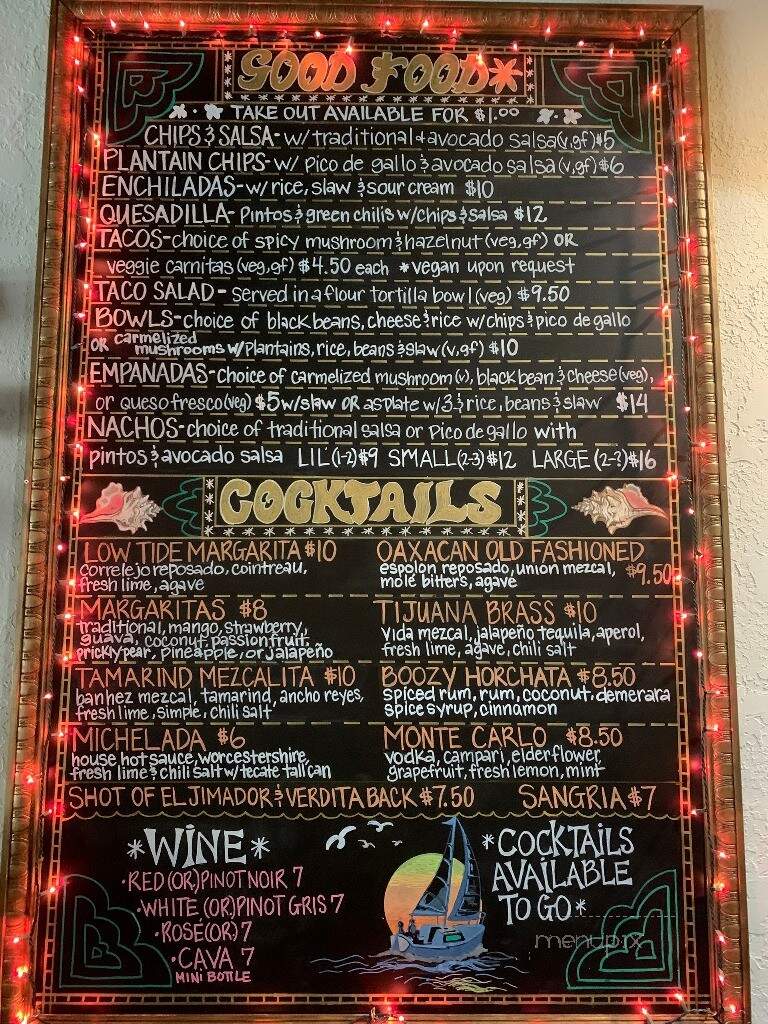 GOOD FOOD*
TAKE OUT AVAILABLE FOR $1.00
CHIPS & SALSA - w/ traditional & avocado salsa (v,gf) $5
PLANTAIN CHIPS - w/ pico de gallo & avocado salsa (v,gf) $6
ENCHILADAS - w/ rice, slaw & sour cream $10
QUESADILLA - Pintos & green chilis w/ chips & salsa $12
TACOS - choice of spicy mushroom & hazelnut (veg,gf) OR
veggie carnitas (veg,gf) $4.50 each *vegan upon request
TACO SALAD - served in a flour tortilla bowl (veg) $9.50
BOWLS - choice of black beans, cheese & rice w/ chips & pico de gallo
OR carmelized mushrooms w/ plantains, rice, beans & slaw (v,gf) $10
EMPANADAS - choice of carmelized mushroom (v), black bean & cheese (veg),
or queso fresco (veg) $5 w/ slaw OR as plate w/ 3 & rice, beans & slaw $14
NACHOS - choice of traditional salsa or pico de gallo with
pintos & avocado salsa LIL' (1-2) $9 SMALL (2-3) $12 LARGE (2-?) $16
COCKTAILS
LOW TIDE MARGARITA $10
correlejo reposado, cointreau,
fresh lime, agave
OAXACAN OLD FASHIONED
espolon reposado, union mezcal, $9.50
mole bitters, agave
MARGARITAS $8
traditional, mango, strawberry,
guava, coconut, passionfruit,
prickly pear, pineapple, or jalapeño
TIJUANA BRASS $10
vida mezcal, jalapeño tequila, aperol,
fresh lime, agave, chili salt
TAMARIND MEZCALITA $10
banhez mezcal, tamarind, ancho reyes,
fresh lime, simple, chili salt
BOOZY HORCHATA $8.50
spiced rum, rum, coconut, demerara
spice syrup, cinnamon
MICHELADA $6
house hot sauce, worcestershire,
fresh lime & chili salt w/ tecate tall can
MONTE CARLO $8.50
vodka, campari, elderflower,
grapefruit, fresh lemon, mint
SHOT OF EL JIMADOR & VERDITA BACK $7.50 SANGRIA $7
*WINE*
·RED (OR) PINOT NOIR 7
·WHITE (OR) PINOT GRIS 7
·ROSÉ (OR) 7
·CAVA 7
MINI BOTTLE
*COCKTAILS
AVAILABLE
TO GO*
menupix